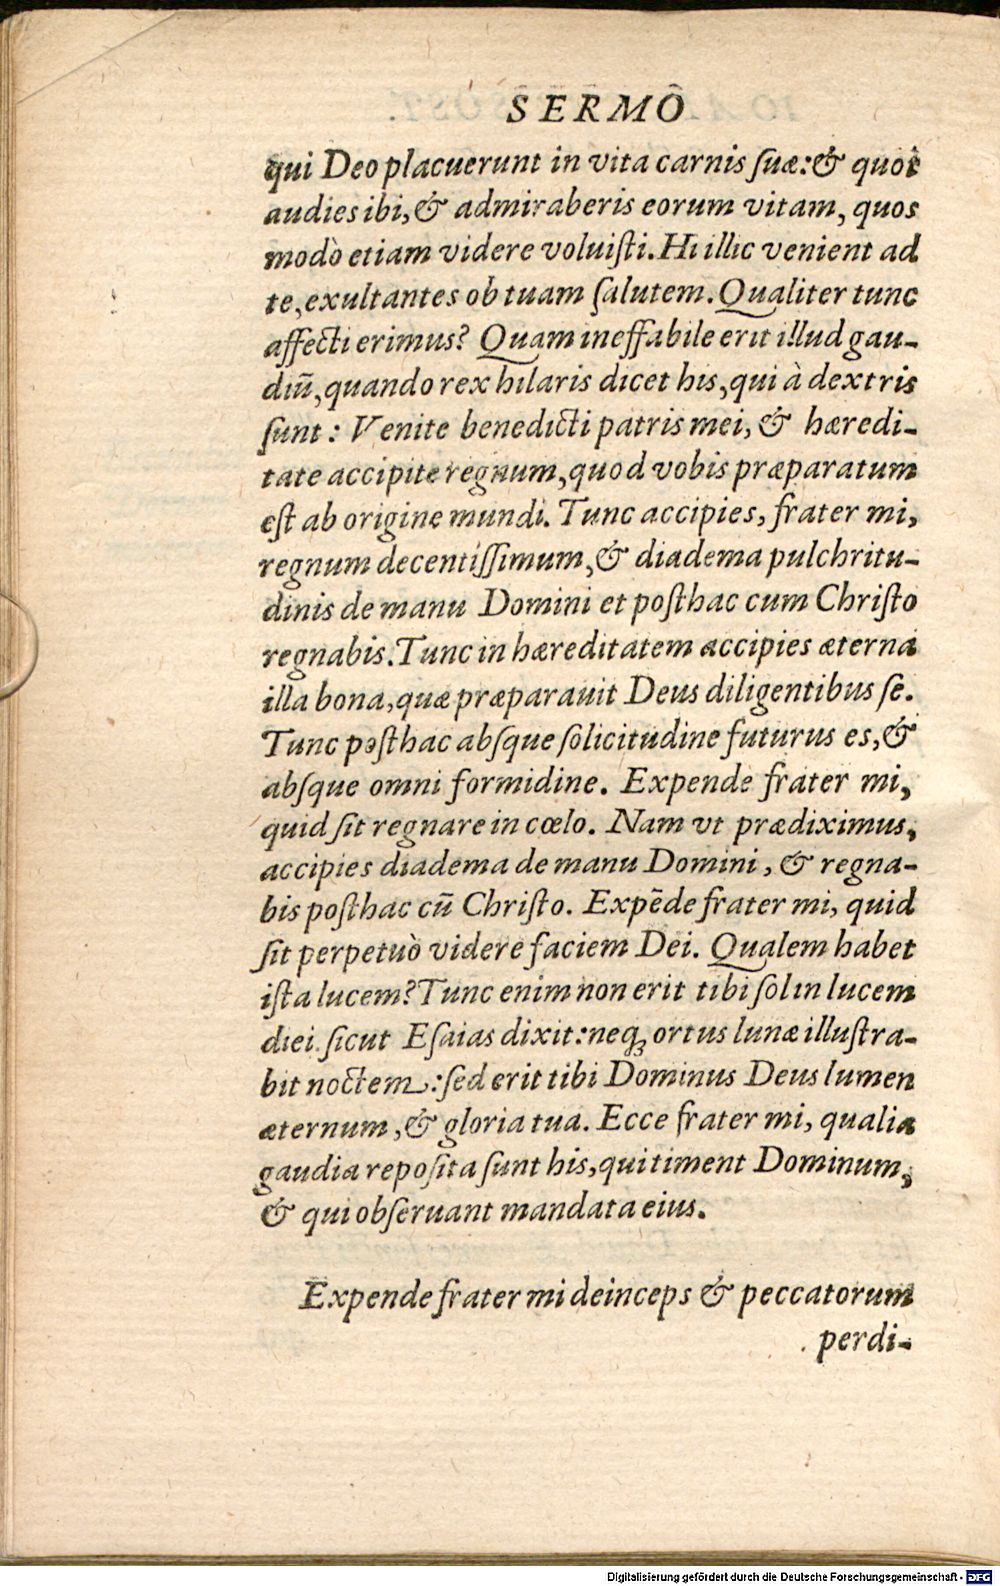 SERMÔ
qui Deo placuerunt in vita carnis ſuæ:& quot
audies ibi,& admiraberis eorum vitam, quos
modò etiam videre voluiſti. Hi illic venient ad
te, exultantes ob tuam ſalutem. Qualiter tunc
affecti erimus? Quam ineffabile erit illud gau-
diū, quando rex hilaris dicet his, qui à dextris
ſunt: Venite benedicti patris mei, & hæredi-
tate accipite regnum, quod vobis præparatum
eſt ab origine mundi. Tunc accipies, frater mi,
regnum decentiſſimum, & diadema pulchritu-
dinis de manu Domini et poſthac cum Chriſto
regnabis. Tunc in hæreditatem accipies æterna
illa bona, quæ præparauit Deus diligentibus ſe.
Tunc poſthac abſque ſolicitudine futurus es, &
abſque omni formidine. Expende frater mi,
quid ſit regnare in cœlo. Nam vt prædiximus,
accipies diadema de manu Domini, & regna-
bis poſthac cū Chriſto. Expēde frater mi, quid
ſit perpetuò videre faciem Dei. Qualem habet
iſta lucem? Tunc enim non erit tibi ſol in lucem
diei. ſicut Eſaias dixit: neq; ortus lunæ illuſtra-
bit noctem: ſed erit tibi Dominus Deus lumen
æternum, & gloria tua. Ecce frater mi, qualia
gaudia repoſita ſunt his, qui timent Dominum,
& qui obſeruant mandata eius.
Expende frater mi deinceps & peccatorum
perdi-
Digitalisierung gefördert durch die Deutsche Forschungsgemeinschaft - DFG